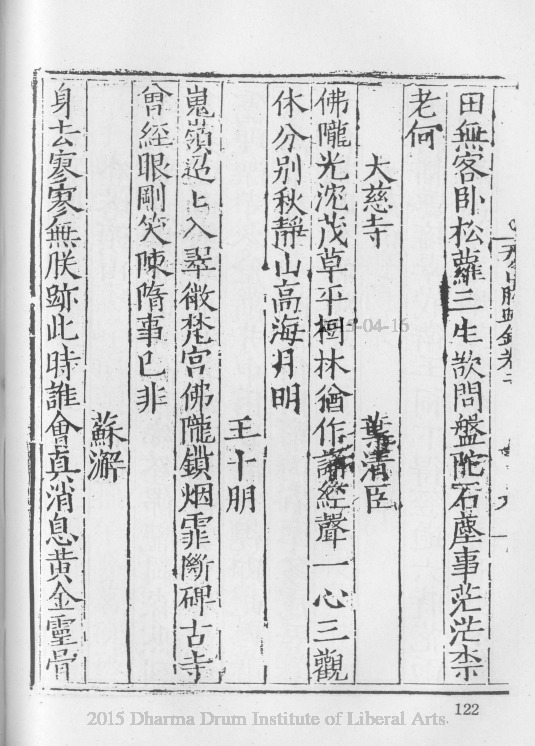 田無客卧松蘿三生欲問盤陀石塵事茫茫柰
老何
大慈寺
葉清臣
佛隴光沈茂草平檀林猶作講經聲一心三觀
休分别秋靜山高海月明
王十朋
嵬嶺迢迢入翠微梵宫佛隴鎖烟霏斷碑古寺
曾經眼剛笑陳隋事已非
蘇澥
身去寥寥無朕跡此時誰會真消息黄金靈骨
122
2015 Dharma Drum Institute of Liberal Arts